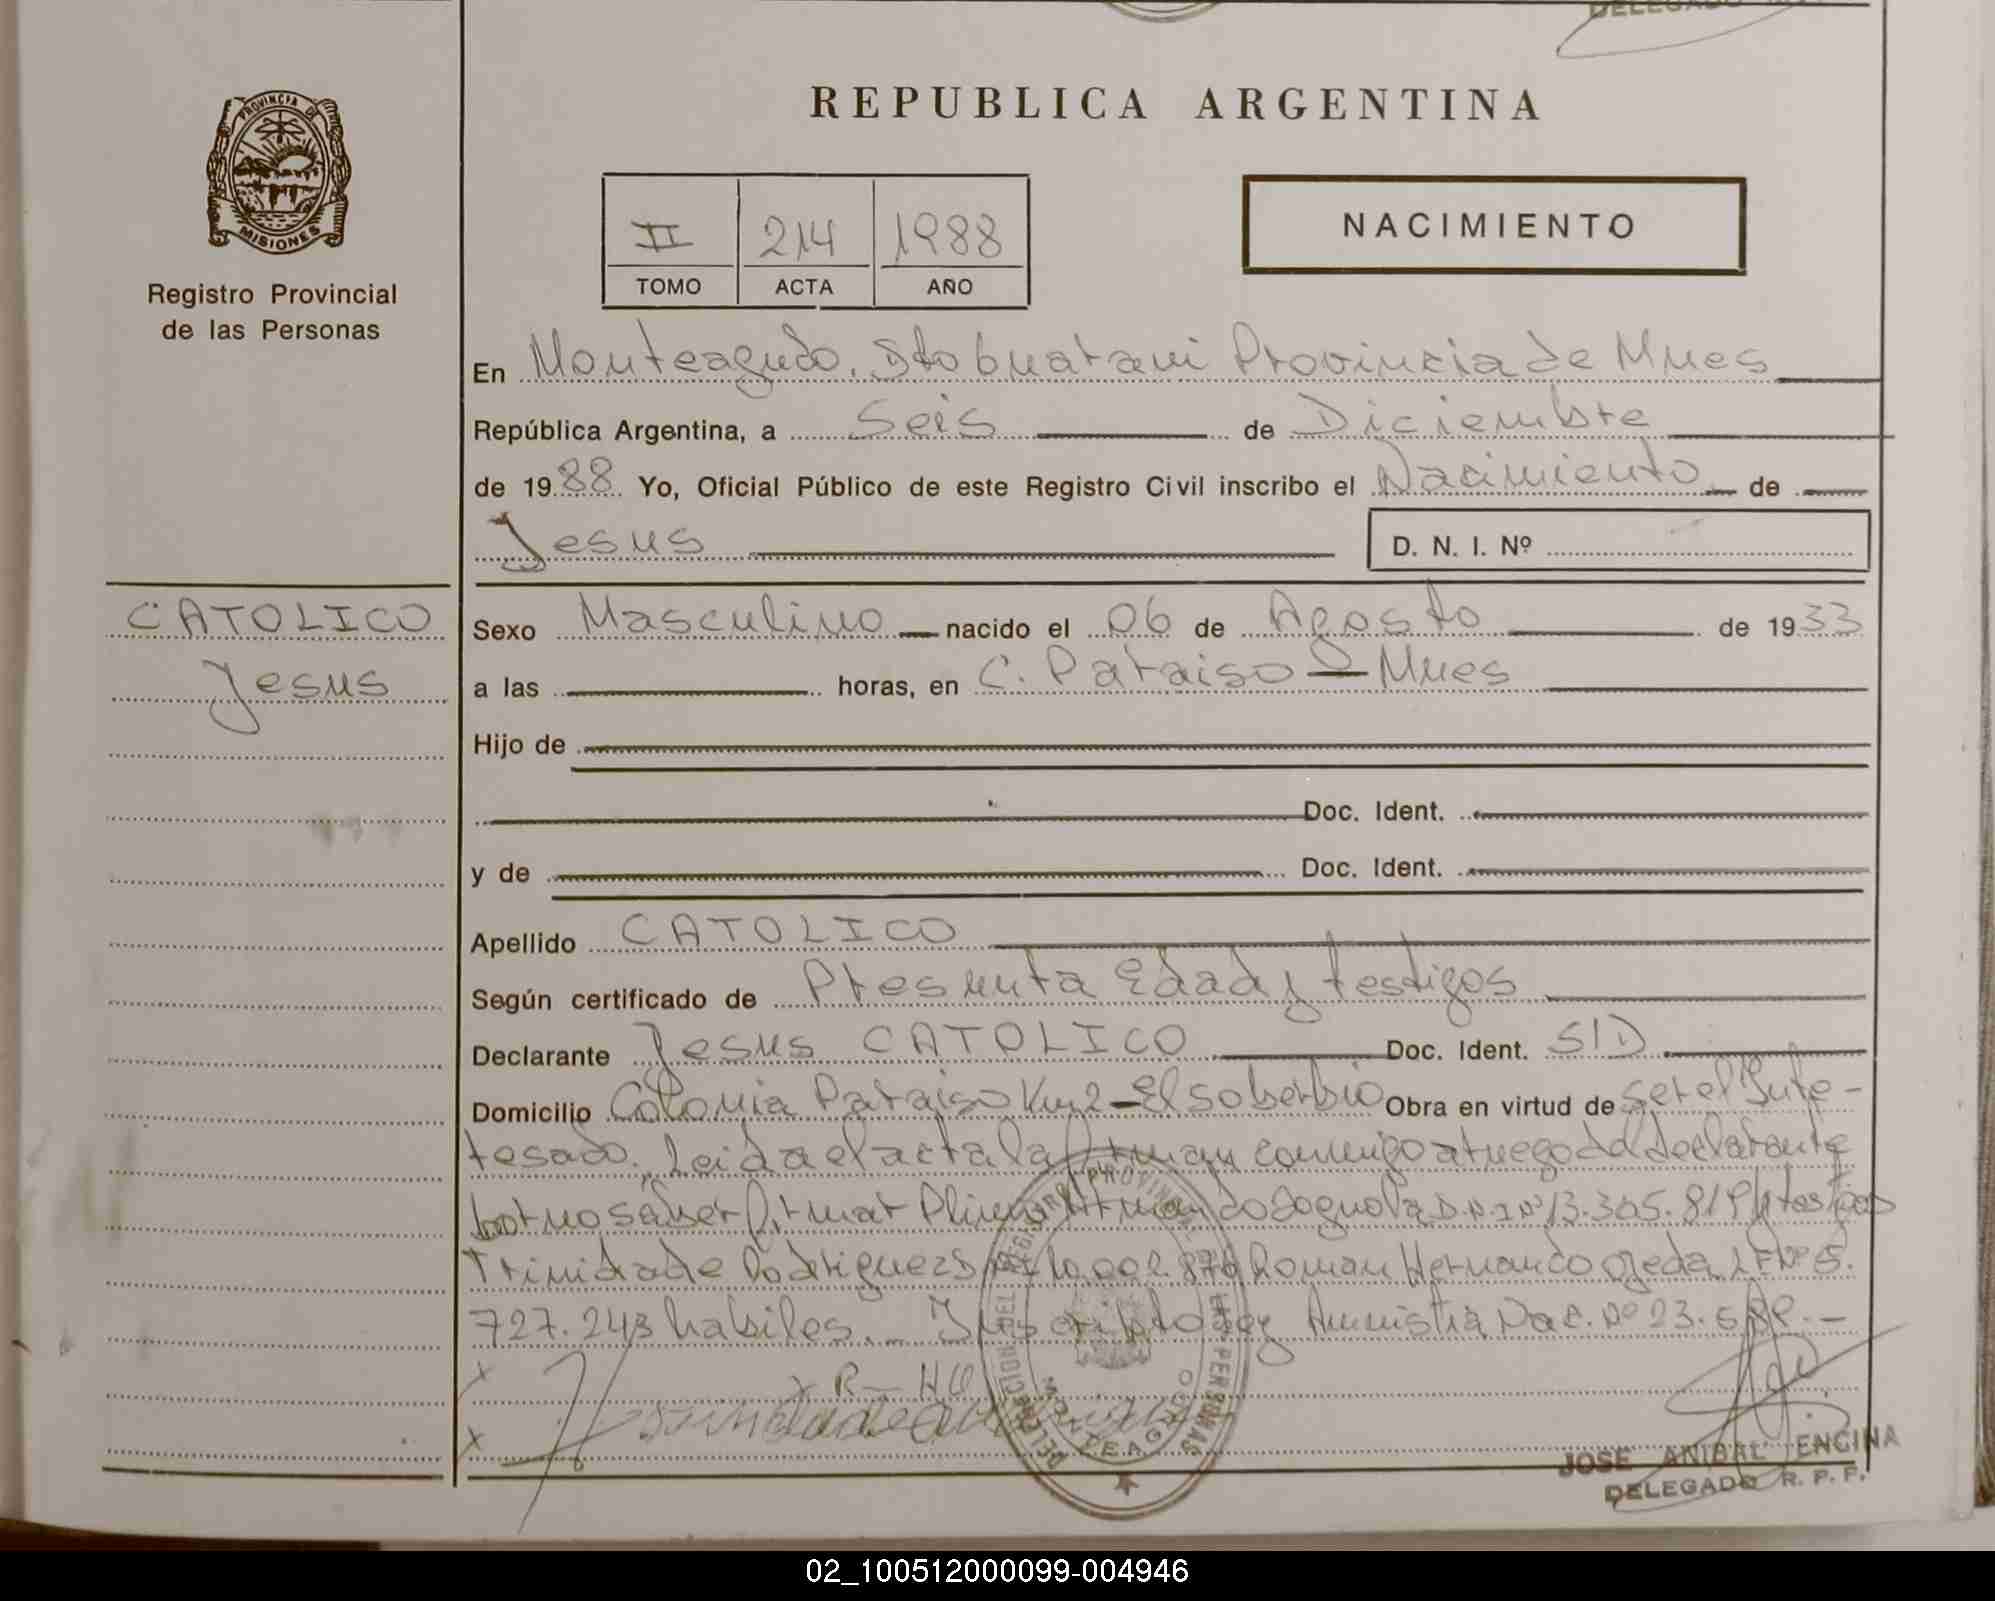 DELEGADO
REPUBLICA ARGENTINA
PROVINCIA DE
MISIONES
Registro Provincial
de las Personas
II 214 1988
TOMO ACTA AÑO
NACIMIENTO
En Monteagudo. Dto Guarani Provincia de Mnes
República Argentina, a Seis de Diciembre
de 1988 Yo, Oficial Público de este Registro Civil inscribo el Nacimiento de
Jesus D. N. I. Nº
CATOLICO
Jesus
Sexo Masculino nacido el 06 de Agosto de 1933
a las horas, en C. Paraiso - Mnes
Hijo de
Doc. Ident.
y de Doc. Ident.
Apellido CATOLICO
Según certificado de Presunta Edad y testigos
Declarante Jesus CATOLICO Doc. Ident. S/D
Domicilio Colonia Paraiso Km 2 - El Soberbio Obra en virtud de ser el Inte-
resado. Leida el acta la firman conmigo a ruego del declarante
por no saber firmar D.N.I Nº 13.305.819 testigos
Trinidade Rodriguez DNI 10.002.876 Roman Hernando Ojeda LE Nº 5.
727.243 habiles. Inscripto Ley Amnistia Nac. Nº 23.
x R-HO
x
DELEGACION DEL REGISTRO PROVINCIAL DE LAS PERSONAS
MONTEAGUDO
JOSE ANIBAL ENCINA
DELEGADO R. P. P.
02_100512000099-004946